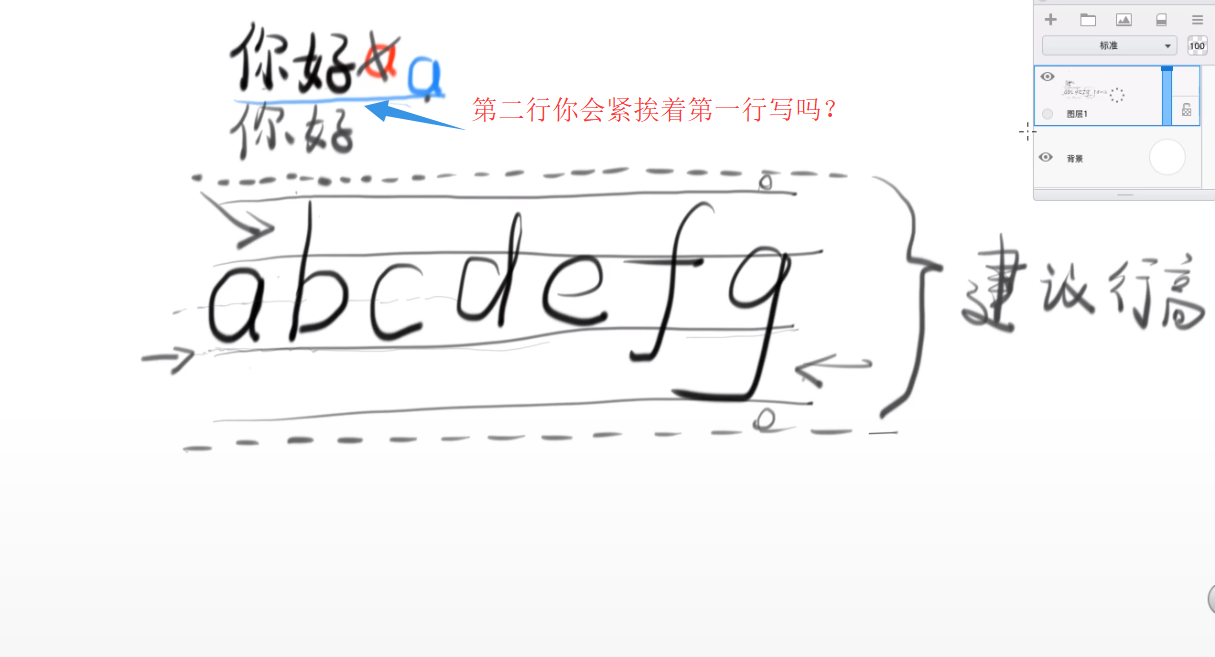 你好a a
第二行你会紧挨着第一行写吗？
你好
abcdefg
建议行高
标准
100
图层1
背景